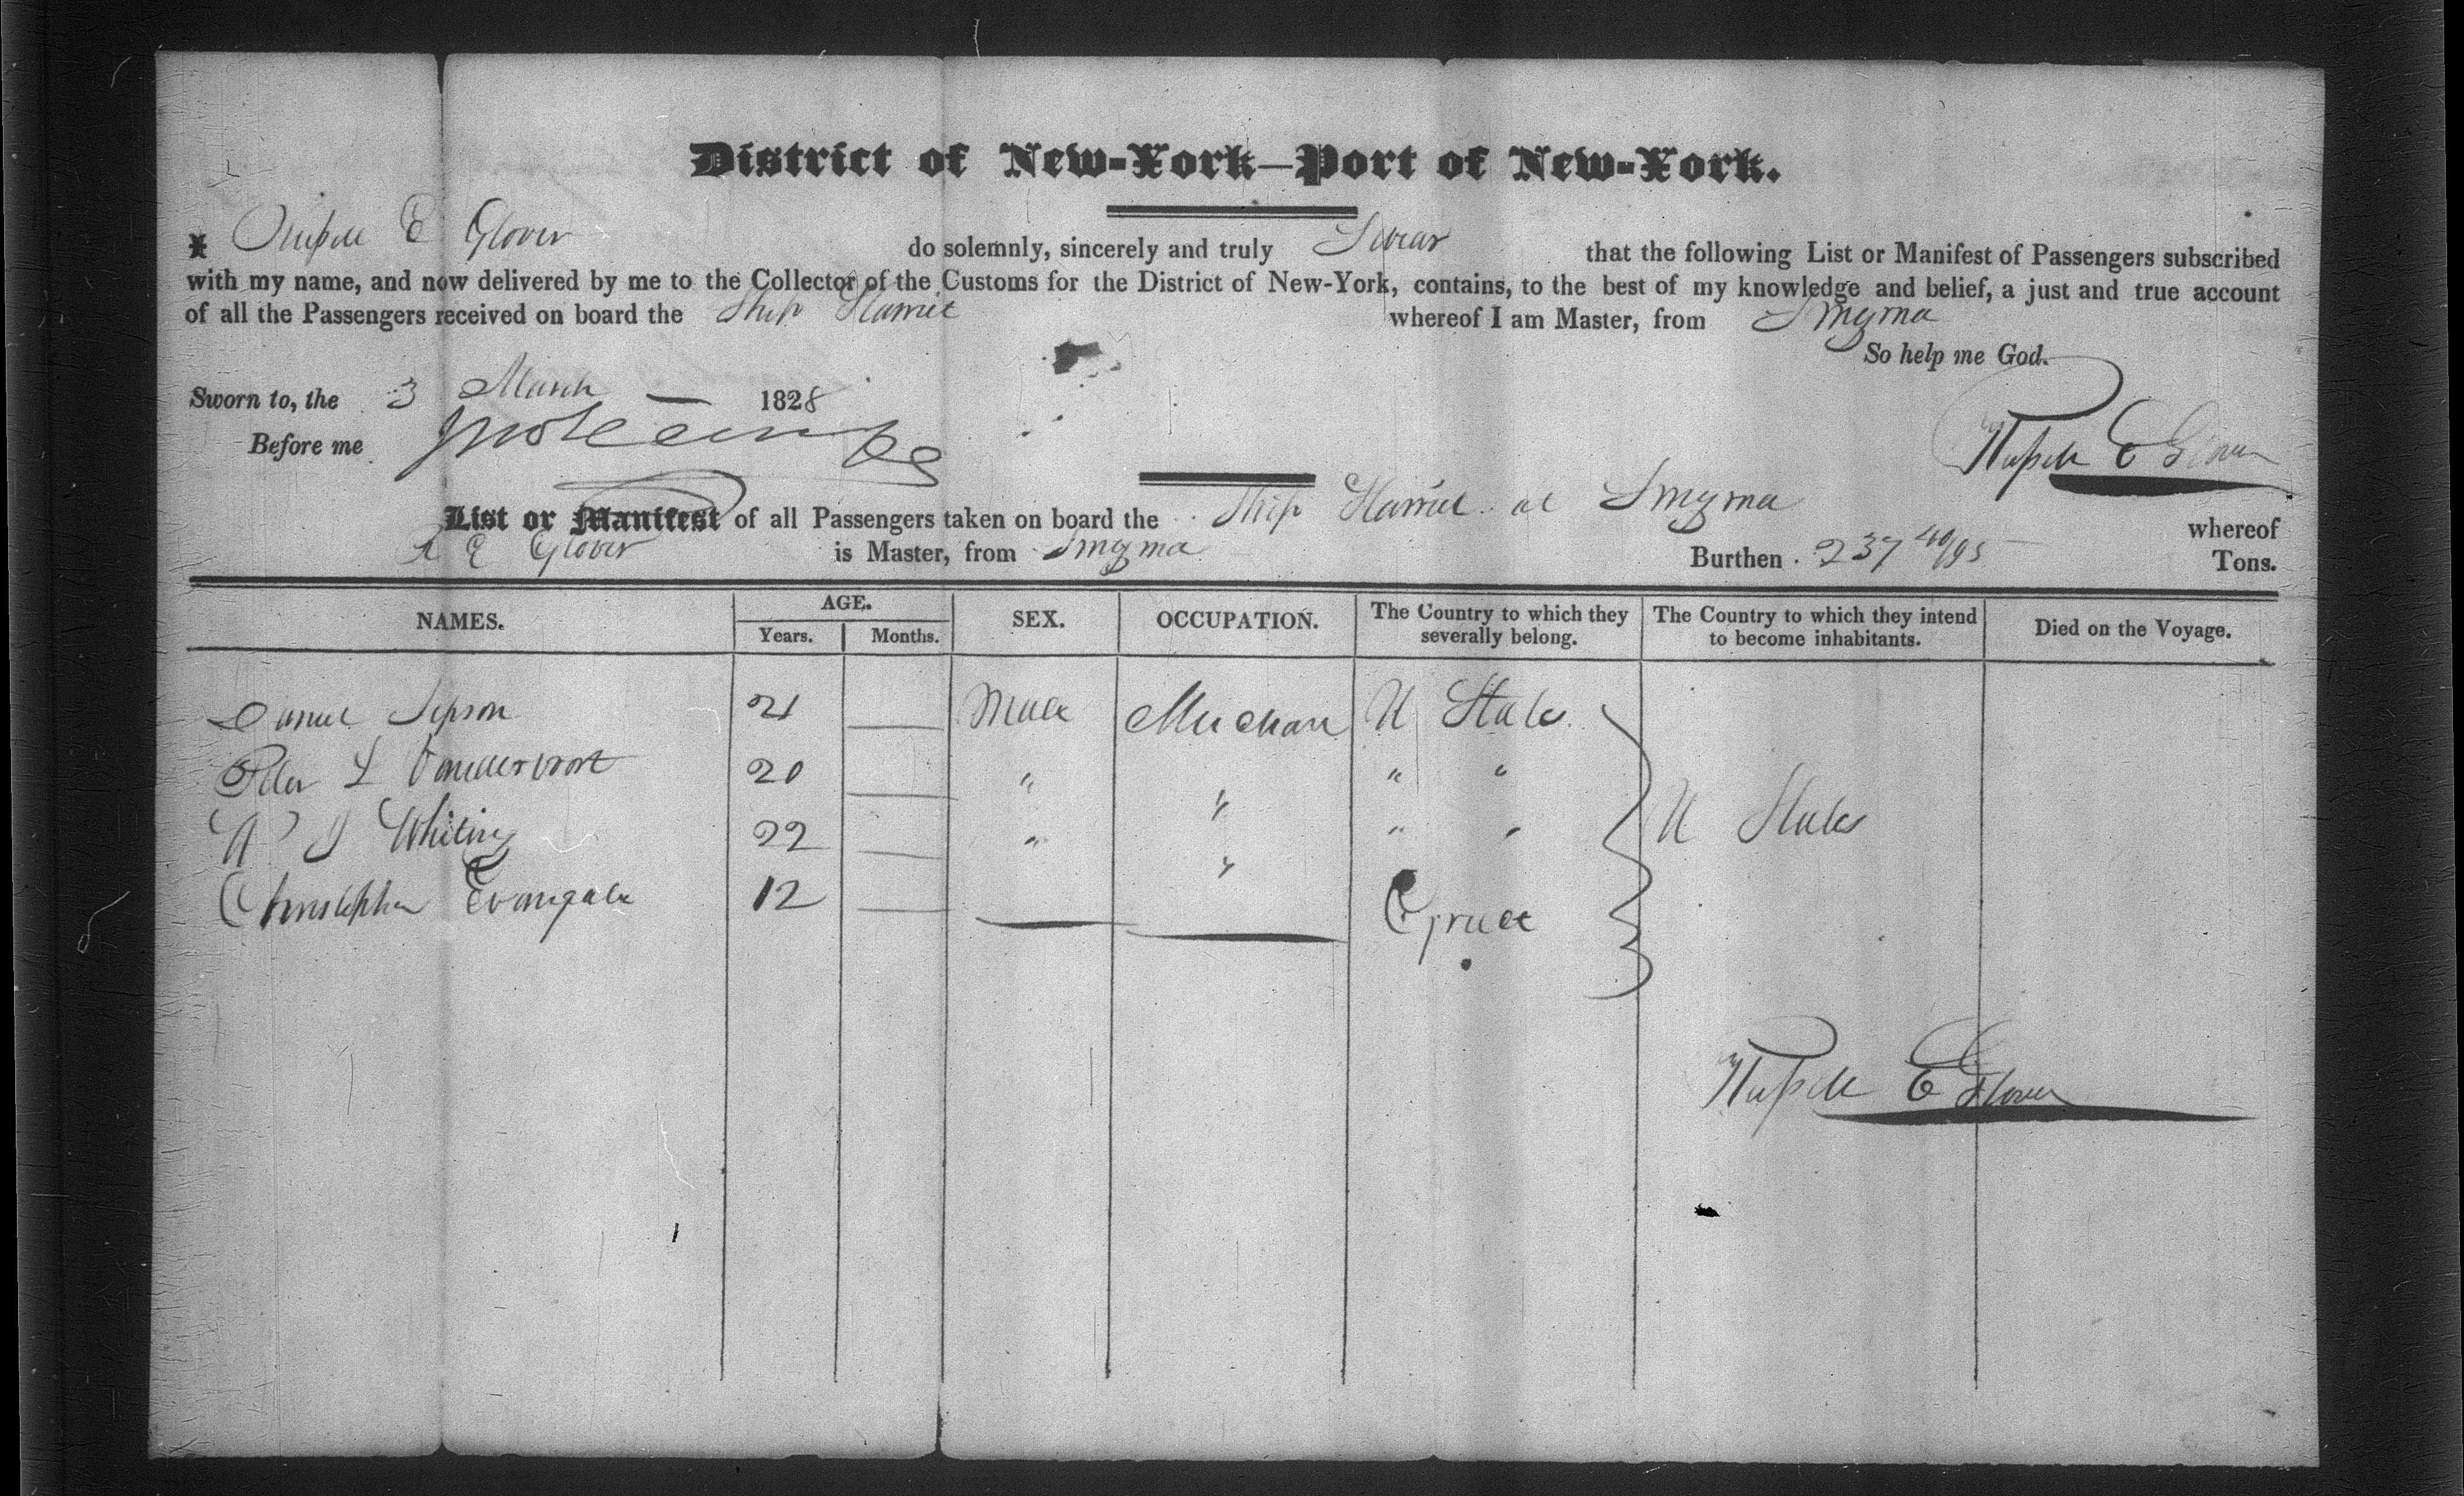 District of New-York—Port of New-York.
I Russell E Glover do solemnly, sincerely and truly Swear that the following List or Manifest of Passengers subscribed
with my name, and now delivered by me to the Collector of the Customs for the District of New-York, contains, to the best of my knowledge and belief, a just and true account
of all the Passengers received on board the Ship Harriet whereof I am Master, from Smyrna
So help me God.
Sworn to, the 3 March 1828
Before me
Russell E Glover
List or Manifest of all Passengers taken on board the Ship Harriet at Smyrna whereof
R E Glover is Master, from Smyrna Burthen 237 40/95 Tons.
NAMES. AGE. Years. Months. SEX. OCCUPATION. The Country to which they severally belong. The Country to which they intend to become inhabitants. Died on the Voyage.
Daniel Jepson 21 Male Merchant U States
Peter L Vandervoort 20 " " " "
W J Whiting 22 " " " " U States
Christopher Evangale 12
Russell E Glover